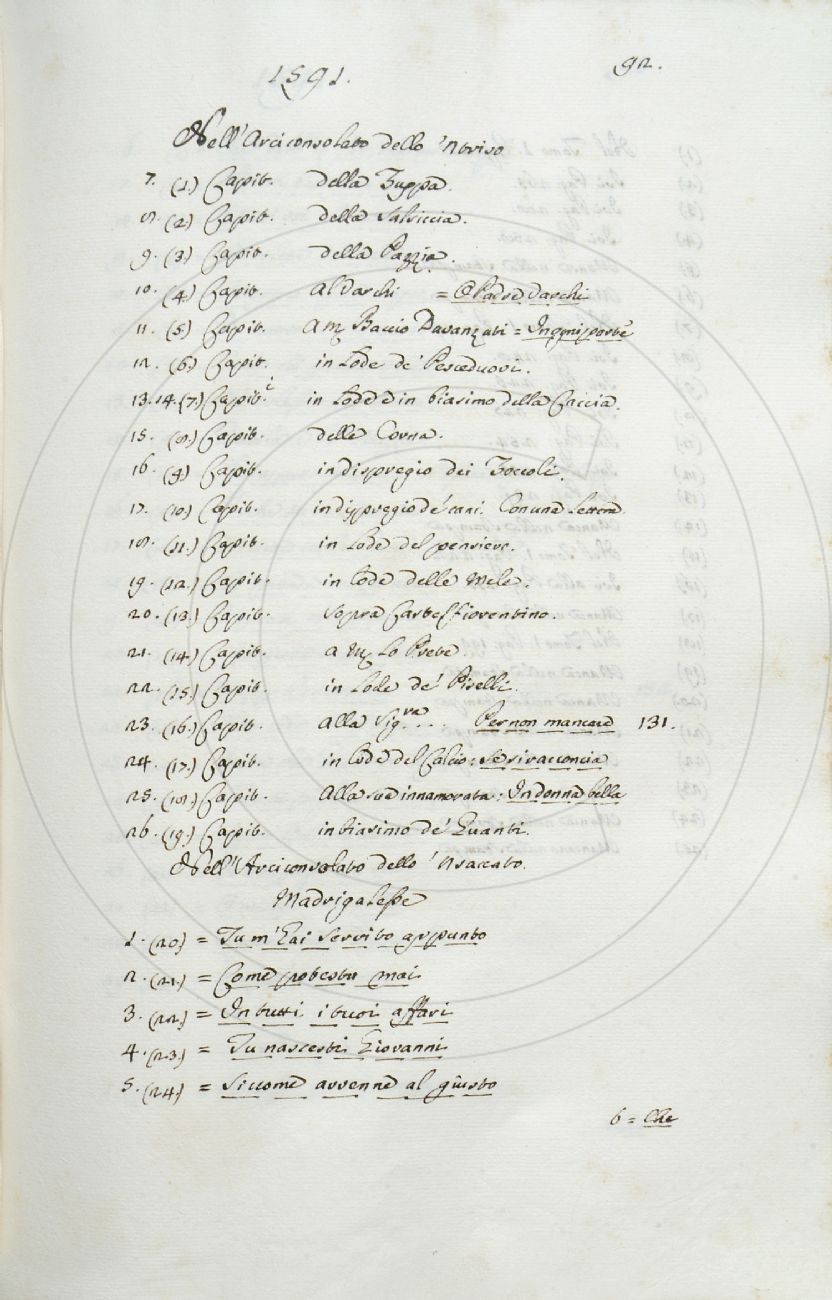 1591.
92.
Nell'Arciconsolato dello 'Ntriso
7. (1.) Capit. della Zuppa.
8. (2) Capit. della Salsiccia.
9. (3.) Capit. della Pazzia.
10. (4.) Capit. al Varchi = O Padre Varchi
11. (5) Capit. a M. Baccio Davanzati = In ogni parte
12. (6.) Capit. in Lode de' Pesceduovi.
13.14.(7.) Capit.i in Lode e in biasimo della Caccia.
15. (8.) Capit. delle Corna.
16. (9) Capit. in dispregio dei Zoccoli.
17. (10.) Capit. in dispregio de' cani. Con una Lettera
18. (11.) Capit. in Lode del pensiero.
19. (12.) Capit. in Lode delle Mele.
20. (13.) Capit. sopra Carte fiorentino.
21. (14.) Capit. a M. Lo Prete.
22. (15.) Capit. in Lode de' Piselli.
23. (16.) Capit. alla Sig.ra ... Per non mancare 131.
24. (17.) Capit. in Lode del Calcio: se si racconcia
25. (18.) Capit. Alla sua innamorata: In donna bella
26. (19.) Capit. in biasimo de' Guanti.
Nell'Arciconsolato dello 'Nsaccato.
Madrigalesse
1. (20.) = Tu m'hai servito appunto
2. (21.) = Come potestu mai
3. (22.) = In tutti i tuoi affari
4. (23.) = Tu nascesti Giovanni
5. (24.) = Siccome avvenne al giusto
6 = Che